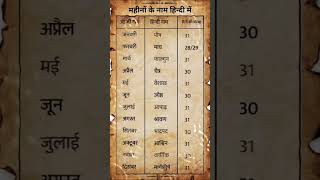 महीनों के नाम हिन्दी में
हिन्दी नाम
जनवरी पौष 31
फरवरी माघ 28/29
मार्च फाल्गुन 31
अप्रैल चैत्र 30
मई वैशाख 31
जून ज्येष्ठ 30
जुलाई आषाढ़ 31
अगस्त श्रावण 31
सितम्बर भाद्रपद 30
अक्टूबर आश्विन 31
कार्तिक 30
दिसंबर मार्गशीर्ष 31
अप्रैल
मई
जून
जुलाई
30
31
30
31